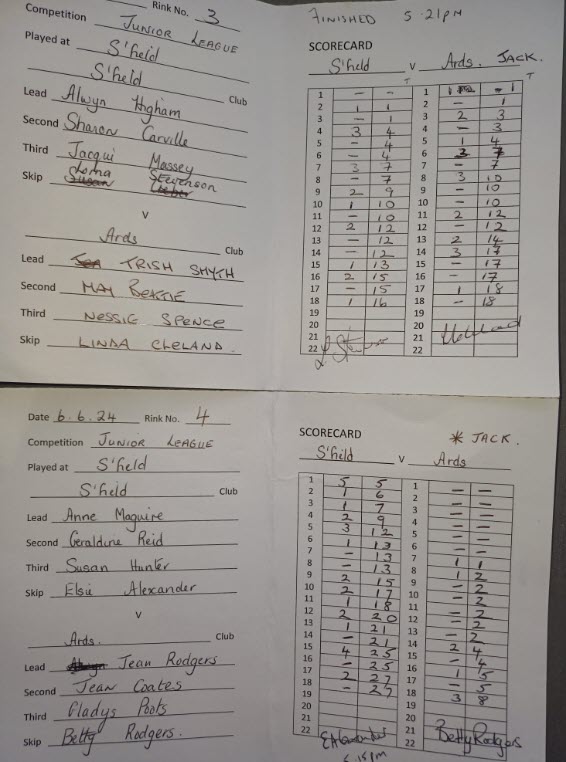 Rink No. 3
FINISHED 5.21PM
Competition JUNIOR LEAGUE
Played at S'field
SCORECARD
S'field v Ards. JACK.
S'field Club
Lead Alwyn Higham
Second Sharon Carville
Third Jacqui Massey
Skip Lorna Stevenson
v
Ards Club
Lead TRISH SMYTH
Second MAY BEATTIE
Third NESSIE SPENCE
Skip LINDA CLELAND.
T T
1 - - 1
2 1 1 2 - 1
3 - 1 3 2 3
4 3 4 4 - 3
5 - 4 5 1 4
6 - 4 6 3 7
7 3 7 7 - 7
8 - 7 8 3 10
9 2 9 9 - 10
10 1 10 10 - 10
11 - 10 11 2 12
12 2 12 12 - 12
13 - 12 13 2 14
14 - 12 14 3 17
15 1 13 15 - 17
16 2 15 16 - 17
17 - 15 17 1 18
18 1 16 18 - 18
19 19
20 20
21 21
22 22
Date 6.6.24 Rink No. 4
Competition JUNIOR LEAGUE
Played at S'field
SCORECARD
* JACK.
S'field v Ards
S'field Club
Lead Anne Maguire
Second Geraldine Reid
Third Susan Hunter
Skip Elsie Alexander
v
Ards. Club
Lead Jean Rodgers
Second Jean Coates
Third Gladys Poots
Skip Betty Rodgers.
1 5 5 1 - -
2 1 6 2 - -
3 1 7 3 - -
4 2 9 4 - -
5 3 12 5 - -
6 1 13 6 - -
7 - 13 7 1 1
8 - 13 8 1 2
9 2 15 9 - 2
10 2 17 10 - 2
11 1 18 11 - 2
12 2 20 12 - 2
13 1 21 13 - 2
14 - 21 14 2 4
15 4 25 15 - 4
16 - 25 16 1 5
17 2 27 17 - 5
18 - 27 18 3 8
19 19
20 20
21 21
22 22
EAlexander Betty Rodgers